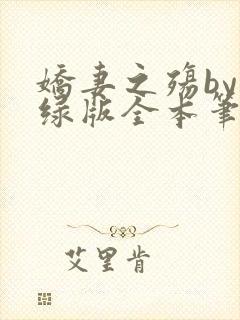 娇妻之殇by
绿版全本笔
艾里肯